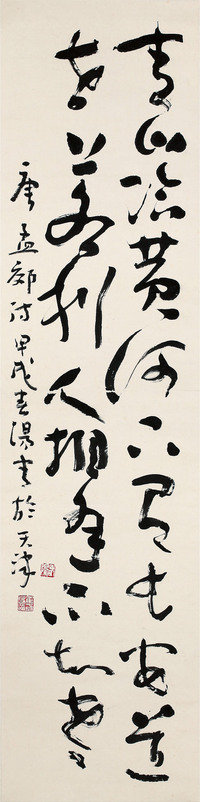 青山臨黄河下有長安道
世上名利人相逢不知老
唐孟郊詩甲戌春書於天津